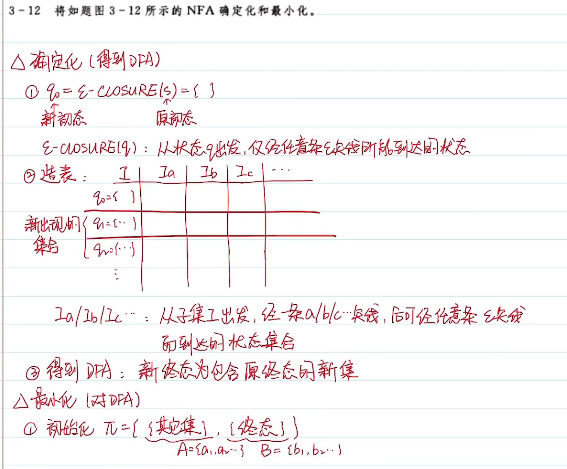 3-12 将如题图 3-12 所示的 NFA 确定化和最小化。
△ 确定化 (得到DFA)
① q₀ = ε-CLOSURE(s) = { }
新初态 原初态
ε-CLOSURE(q)：从状态q出发,仅经任意条ε矢线所能到达的状态
② 造表： I Ia Ib Ic …
q₀={ }
新出现的 q₁={…}
集合 q₂={…}
⋮
Ia/Ib/Ic…：从子集I出发,经一条a/b/c…矢线,后可经任意条ε矢线
而到达的状态集合
③ 得到 DFA：新终态为包含原终态的新集
△ 最小化 (对DFA)
① 初始化 π={ {其它集}, {终态} }
A={a₁,a₂…} B={b₁,b₂…}